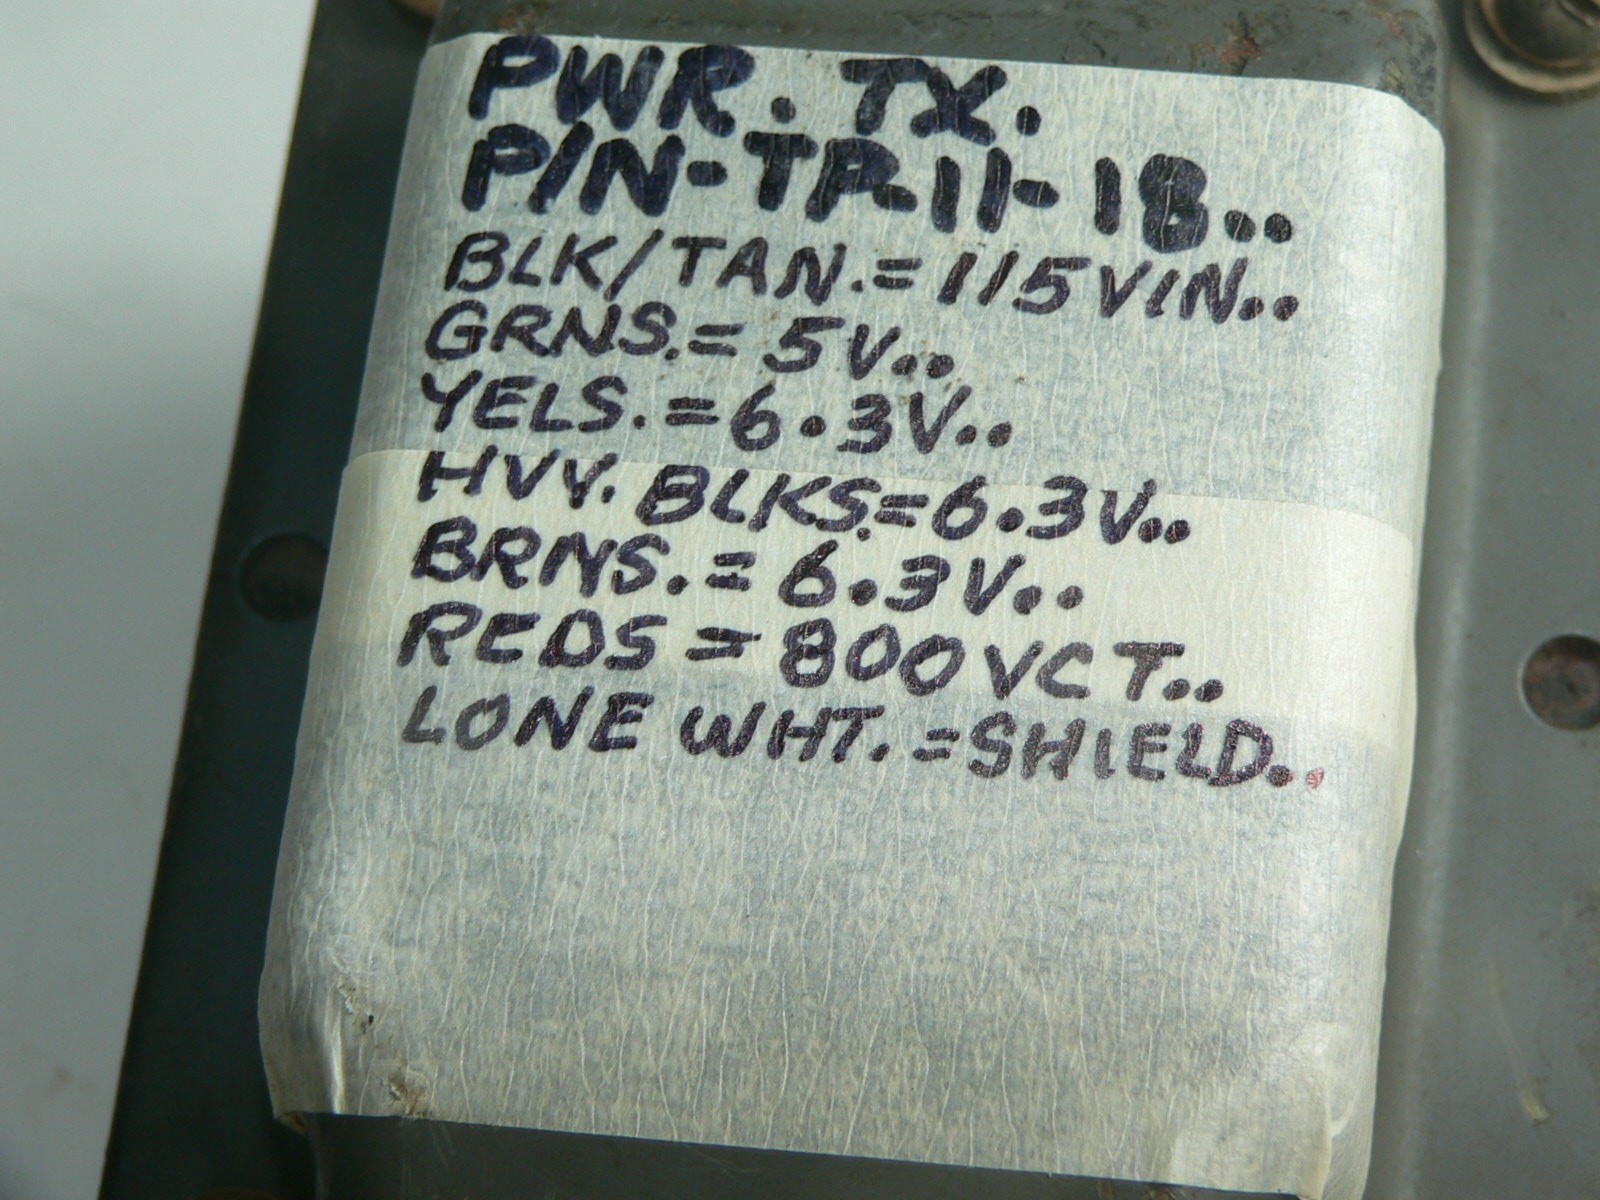 PWR. TX.
P/N-TR-11-18..
BLK/TAN.=115VIN..
GRNS.=5V..
YELS.=6.3V..
HVY. BLKS.=6.3V..
BRNS.=6.3V..
REDS=800VCT..
LONE WHT.=SHIELD..